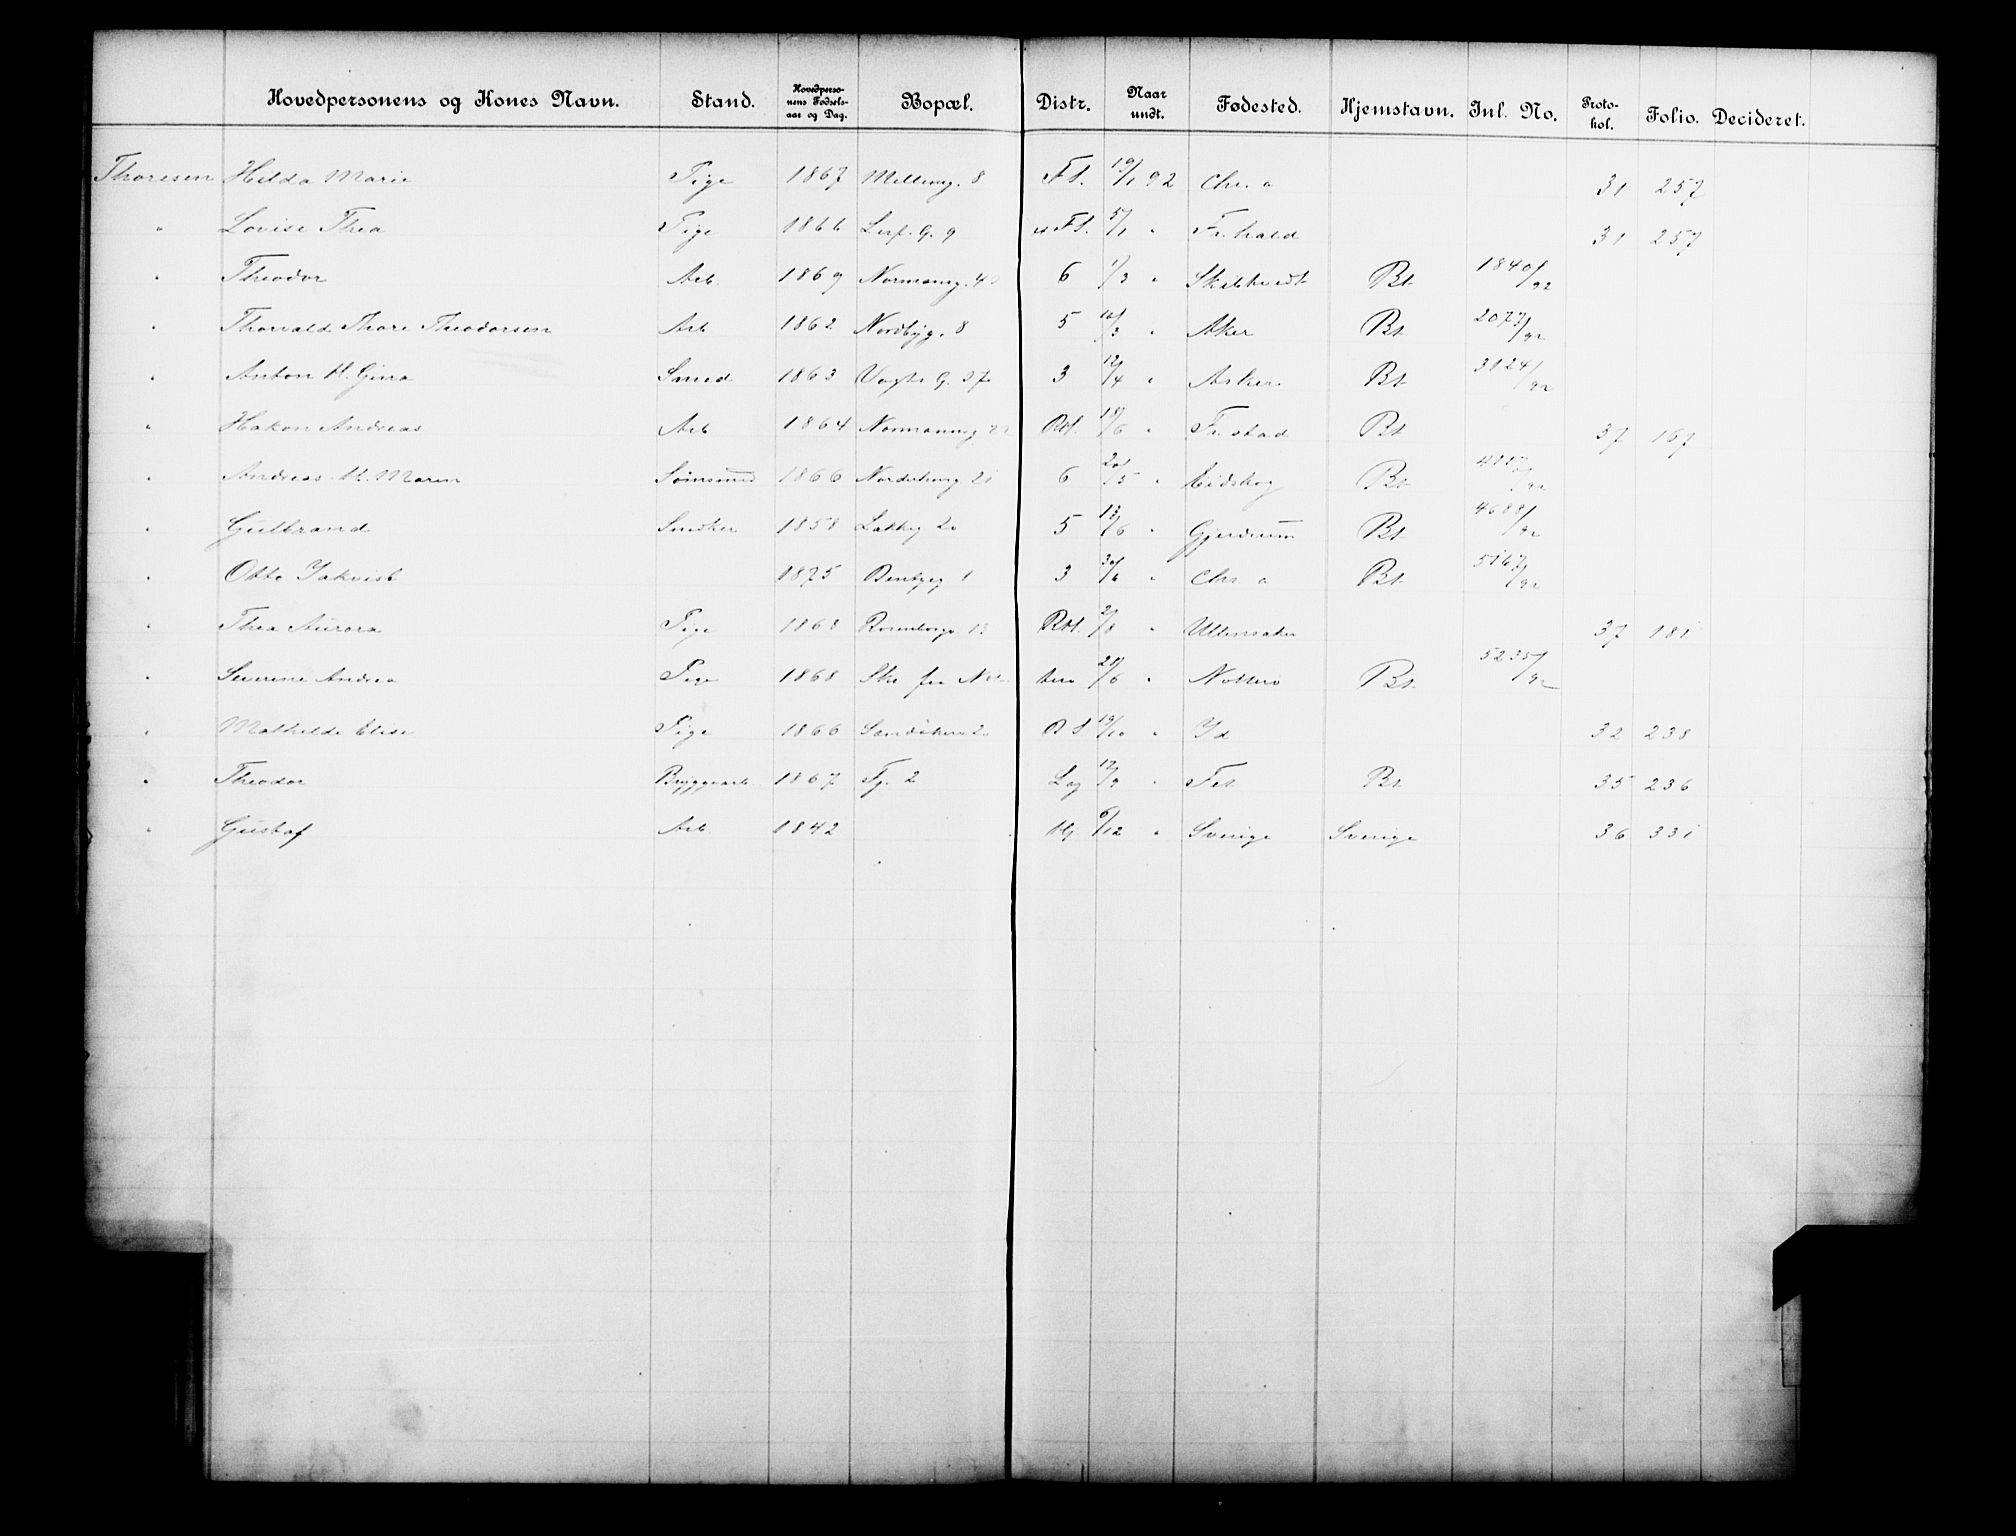 Hovedpersonens og Kones Navn. Stand. Hovedperso-nens Fødsels-aar og Dag. Bopæl. Distr. Naar undt. Fødested. Hjemstavn. Inl. No. Proto-kol. Folio. Decideret.
Thoresen Hilda Marie Pige 1867 Mølleng. 8 Fl. 19/1 92 Chr. a 31 257
" Lovise Thea Pige 1866 G. 9 Fl. 5/1 " Fr. hald 31 257
" Theodor Arb. 1869 Normanng. 40 6 1/3 " Bt. 1840/92
" Thorvald Thore Theodorsen Arb 1862 Nordbyg. 8 5 10/3 " Aker Bt. 2077/92
" Anton H. Gina Smed 1863 Vogts G. 3 12/4 " Asker Bt. 3124/92
" Hakon Andreas Arb 1864 Normanng 22 Rbl. /6 " Fr. stad Bt 37 167
" Andreas H. Maren 1866 21 6 20/5 " Eidskog Bt. /92
" Gulbrand Snedker 1858 Lakkeg 20 5 13/6 " Gjerdrum Bt. 4688/92
" Otto 1875 Bentzeg 1 3 30/6 " Chr. a Bt. 5167/92
" Thea Aurora Pige 1868 Rosenborgg 13 Rbl. 2/8 " Ullensaker 37 181
" Severine Andrea Pige 1868 Ske fra Nøt terø 28/6 " Nøtterø Bt. 5235/92
" Mathilde Elise Pige 1866 20 19/10 " Id 32 238
" Theodor Bryggearb 1867 Fj. 2 Lag " Fet Bt. 35 236
" Gustaf Arb 1842 Hj 6/12 " Sverige Sverige 36 331